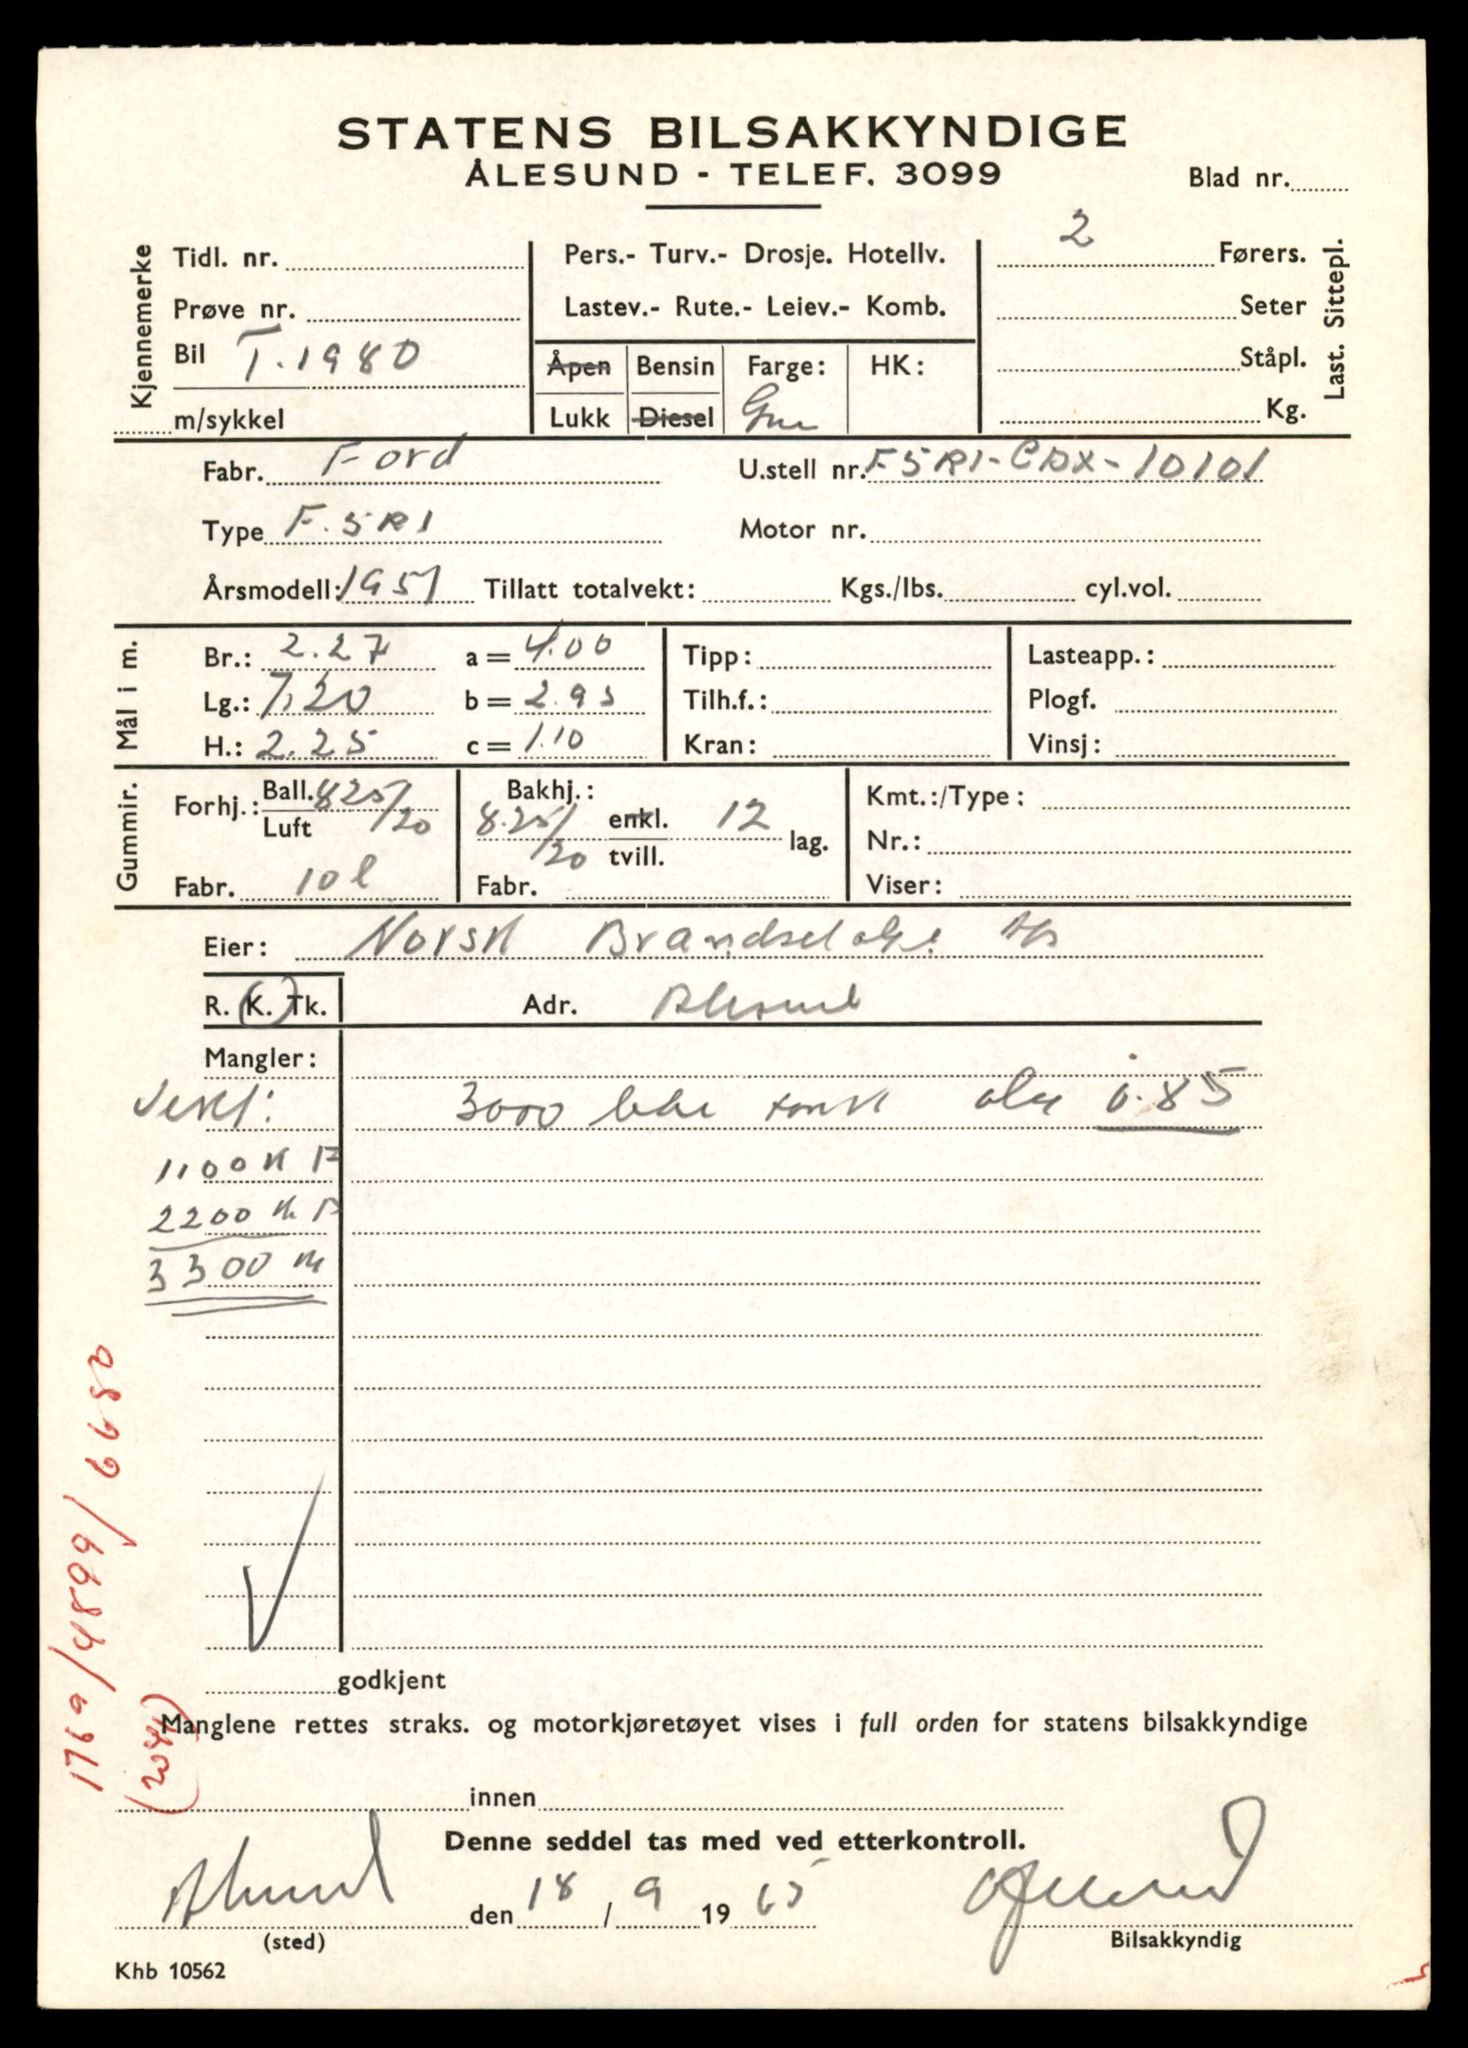 STATENS BILSAKKYNDIGE
ÅLESUND - TELEF. 3099
Blad nr.
Kjennemerke
Tidl. nr.
Prøve nr.
Bil T. 1980
m/sykkel
Pers.- Turv.- Drosje. Hotellv.
Lastev.- Rute.- Leiev.- Komb.
Åpen Bensin Farge: HK:
Lukk Diesel
2 Førers.
Seter
Ståpl.
Kg.
Last. Sittepl.
Fabr. Ford U.stell nr. F5R1-CDX-10101
Type F.5R1 Motor nr.
Årsmodell: 1951 Tillatt totalvekt: Kgs./lbs. cyl.vol.
Mål i m.
Br.: 2.27 a = 4.00 Tipp: Lasteapp.:
Lg.: 7.20 b = 2.95 Tilh.f.: Plogf.
H.: 2.25 c = 1.10 Kran: Vinsj:
Gummir.
Forhj.: Ball. 825/20 Luft
Fabr. 10 l
Bakhj.: 8.25/20 enkl. tvill. 12 lag.
Fabr.
Kmt.:/Type:
Nr.:
Viser:
Eier: Norsk Brændselolje A/S
R. (K.) Tk. Adr. Ålesund
Mangler:
Vekt: 3000 tank 0.85
1100 K F
2200 K B
3300 K
1769/4899/6680
(2041)
godkjent
Manglene rettes straks. og motorkjøretøyet vises i full orden for statens bilsakkyndige
innen
Denne seddel tas med ved etterkontroll.
Ålesund den 18 / 9 19 65
(sted)
Bilsakkyndig
Khb 10562